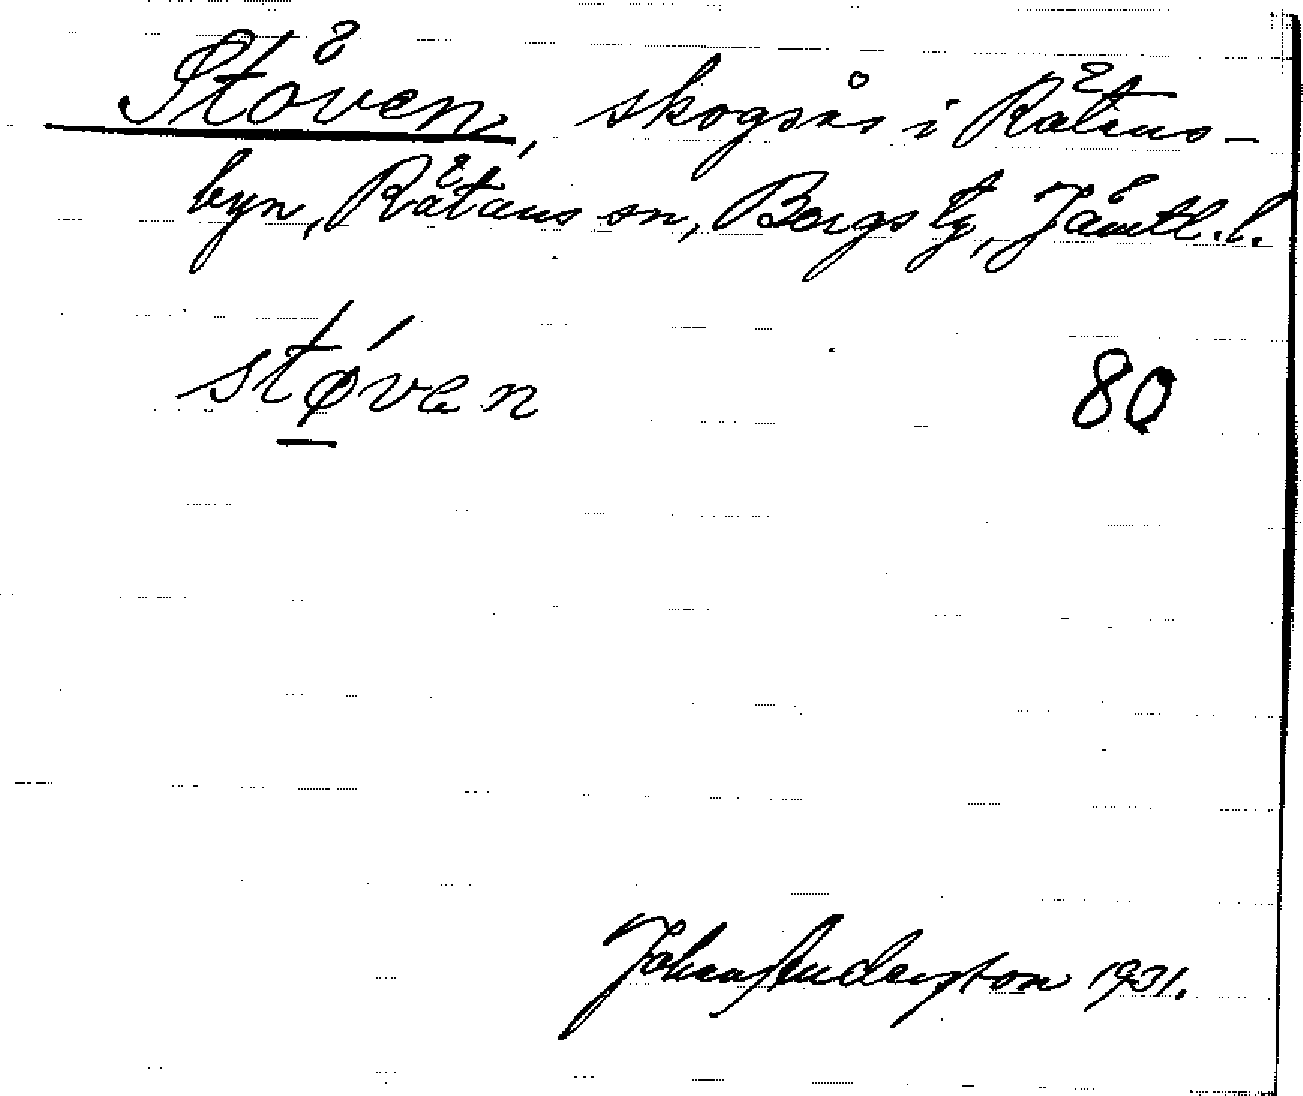 Stöven, skogsås i Rätans-
byn, Rätans sn, Bergs tg, Jämtl. l.
støven 80
Johan Anderson 1931.